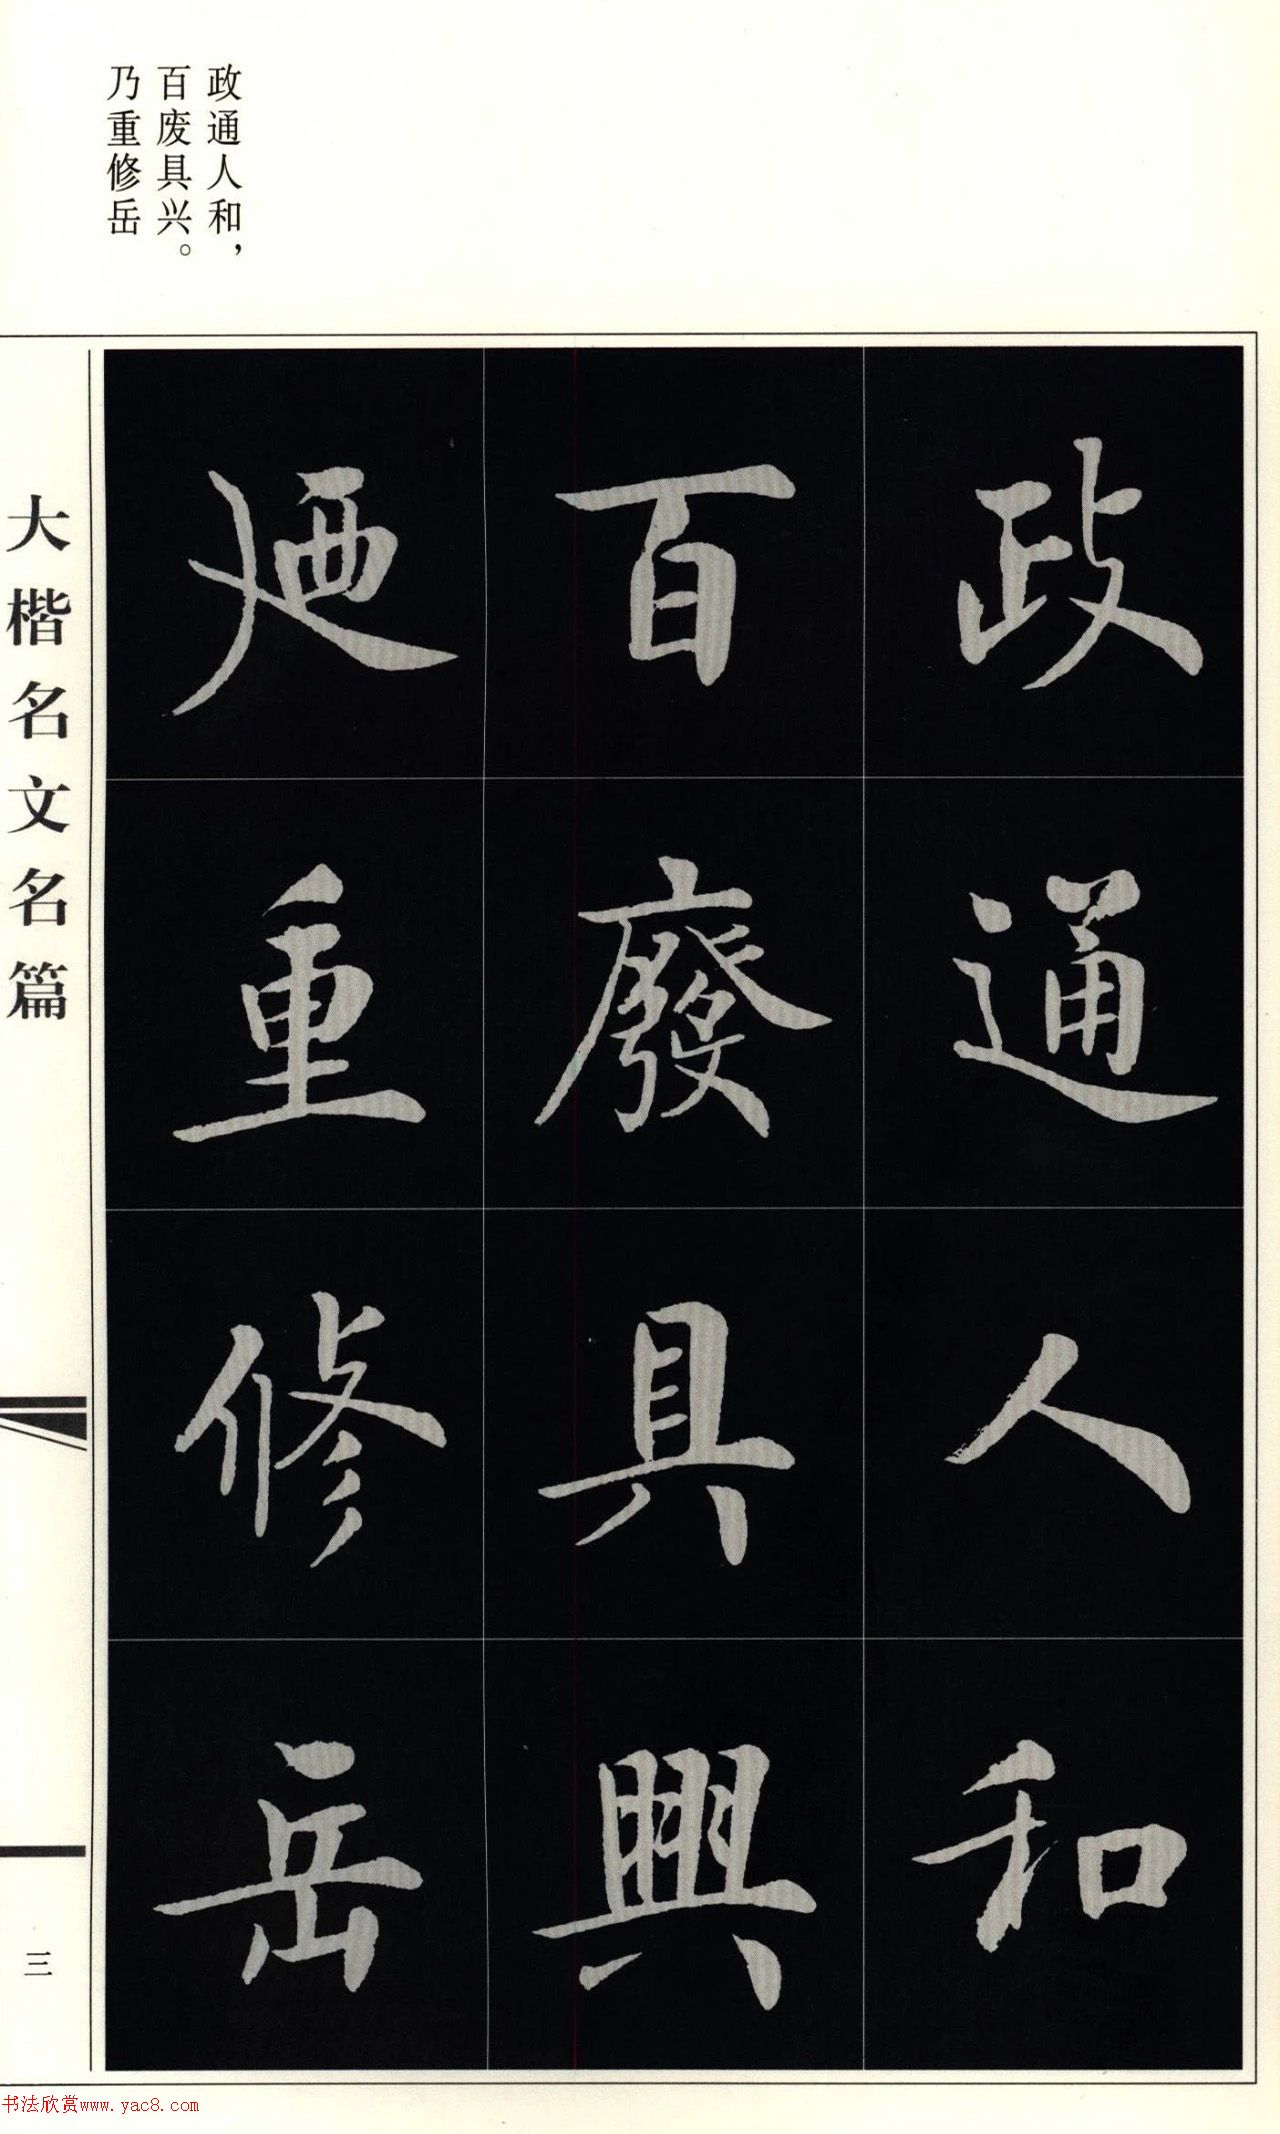 政通人和，
百废具兴。
乃重修岳
政通人和
百廢具興
廼重修岳
大楷名文名篇
三
书法欣赏www.yac8.com